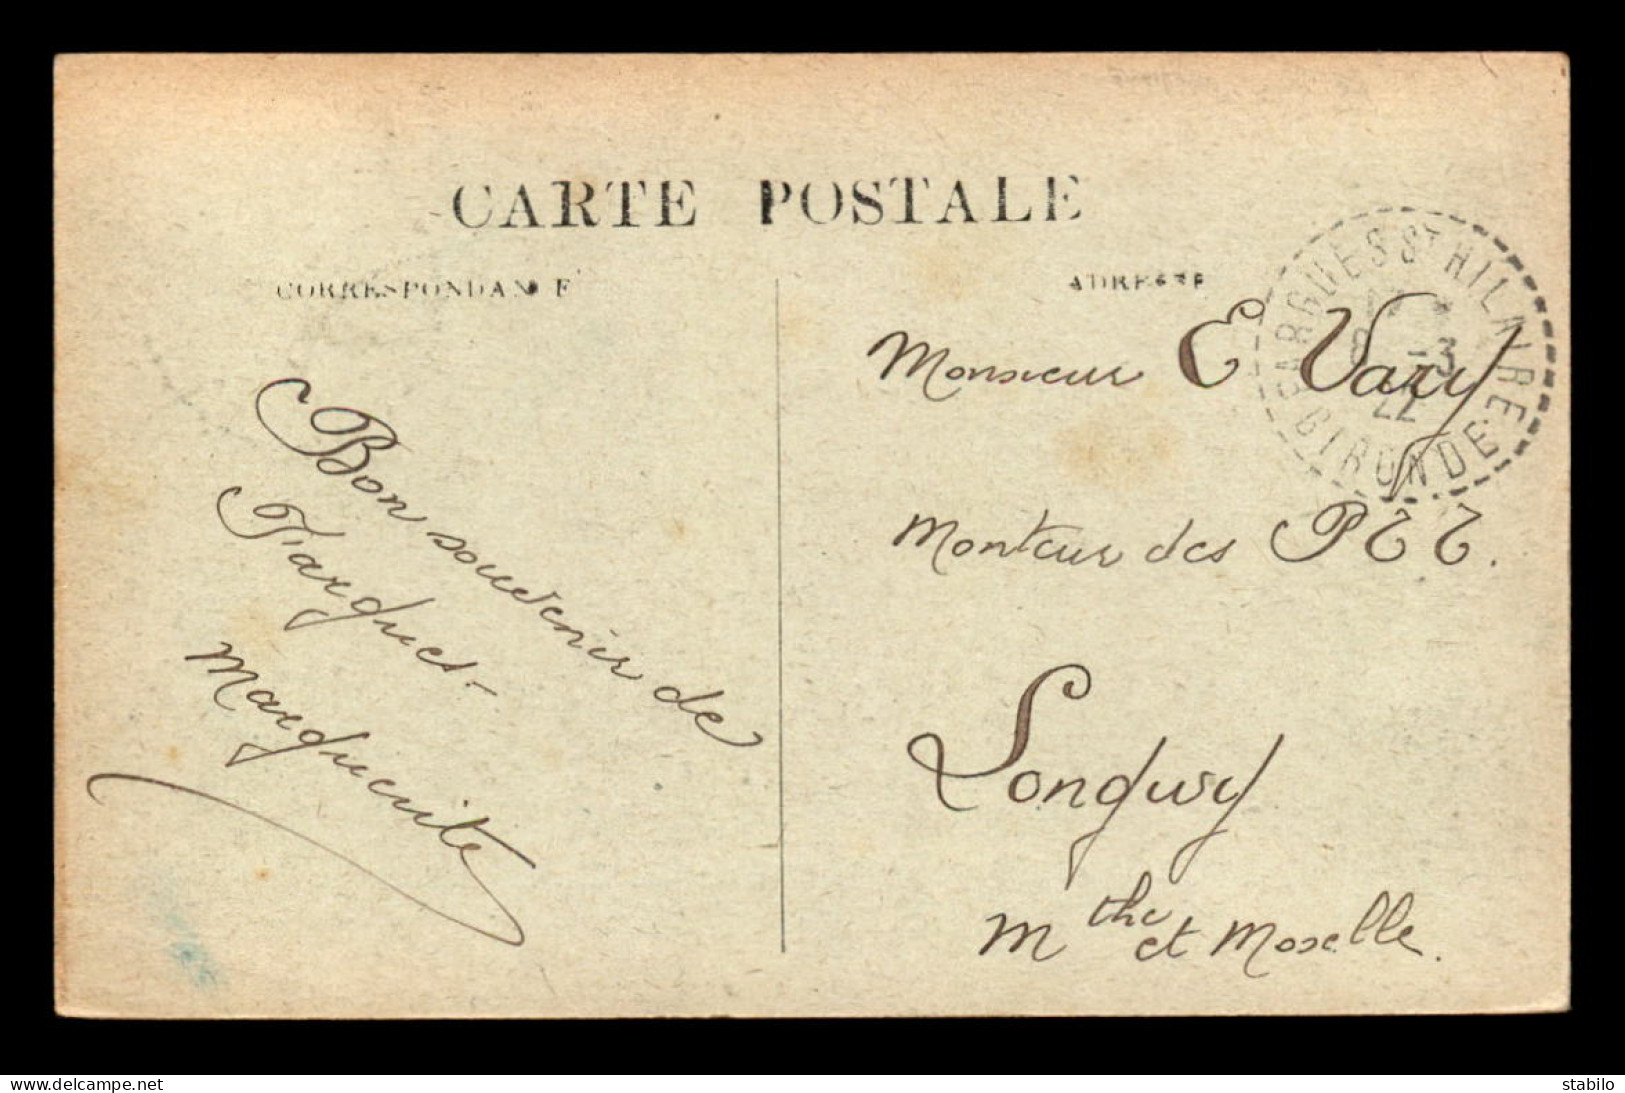 CARTE POSTALE
CORRESPONDANCE
ADRESSE
Bon souvenir de
Fargues -
Marguerite
Monsieur E Vary
Monteur des PTT.
Longwy
Mthe et Moselle.
FARGUES St HILAIRE
8 -3
22
GIRONDE
www.delcampe.net
stabilo